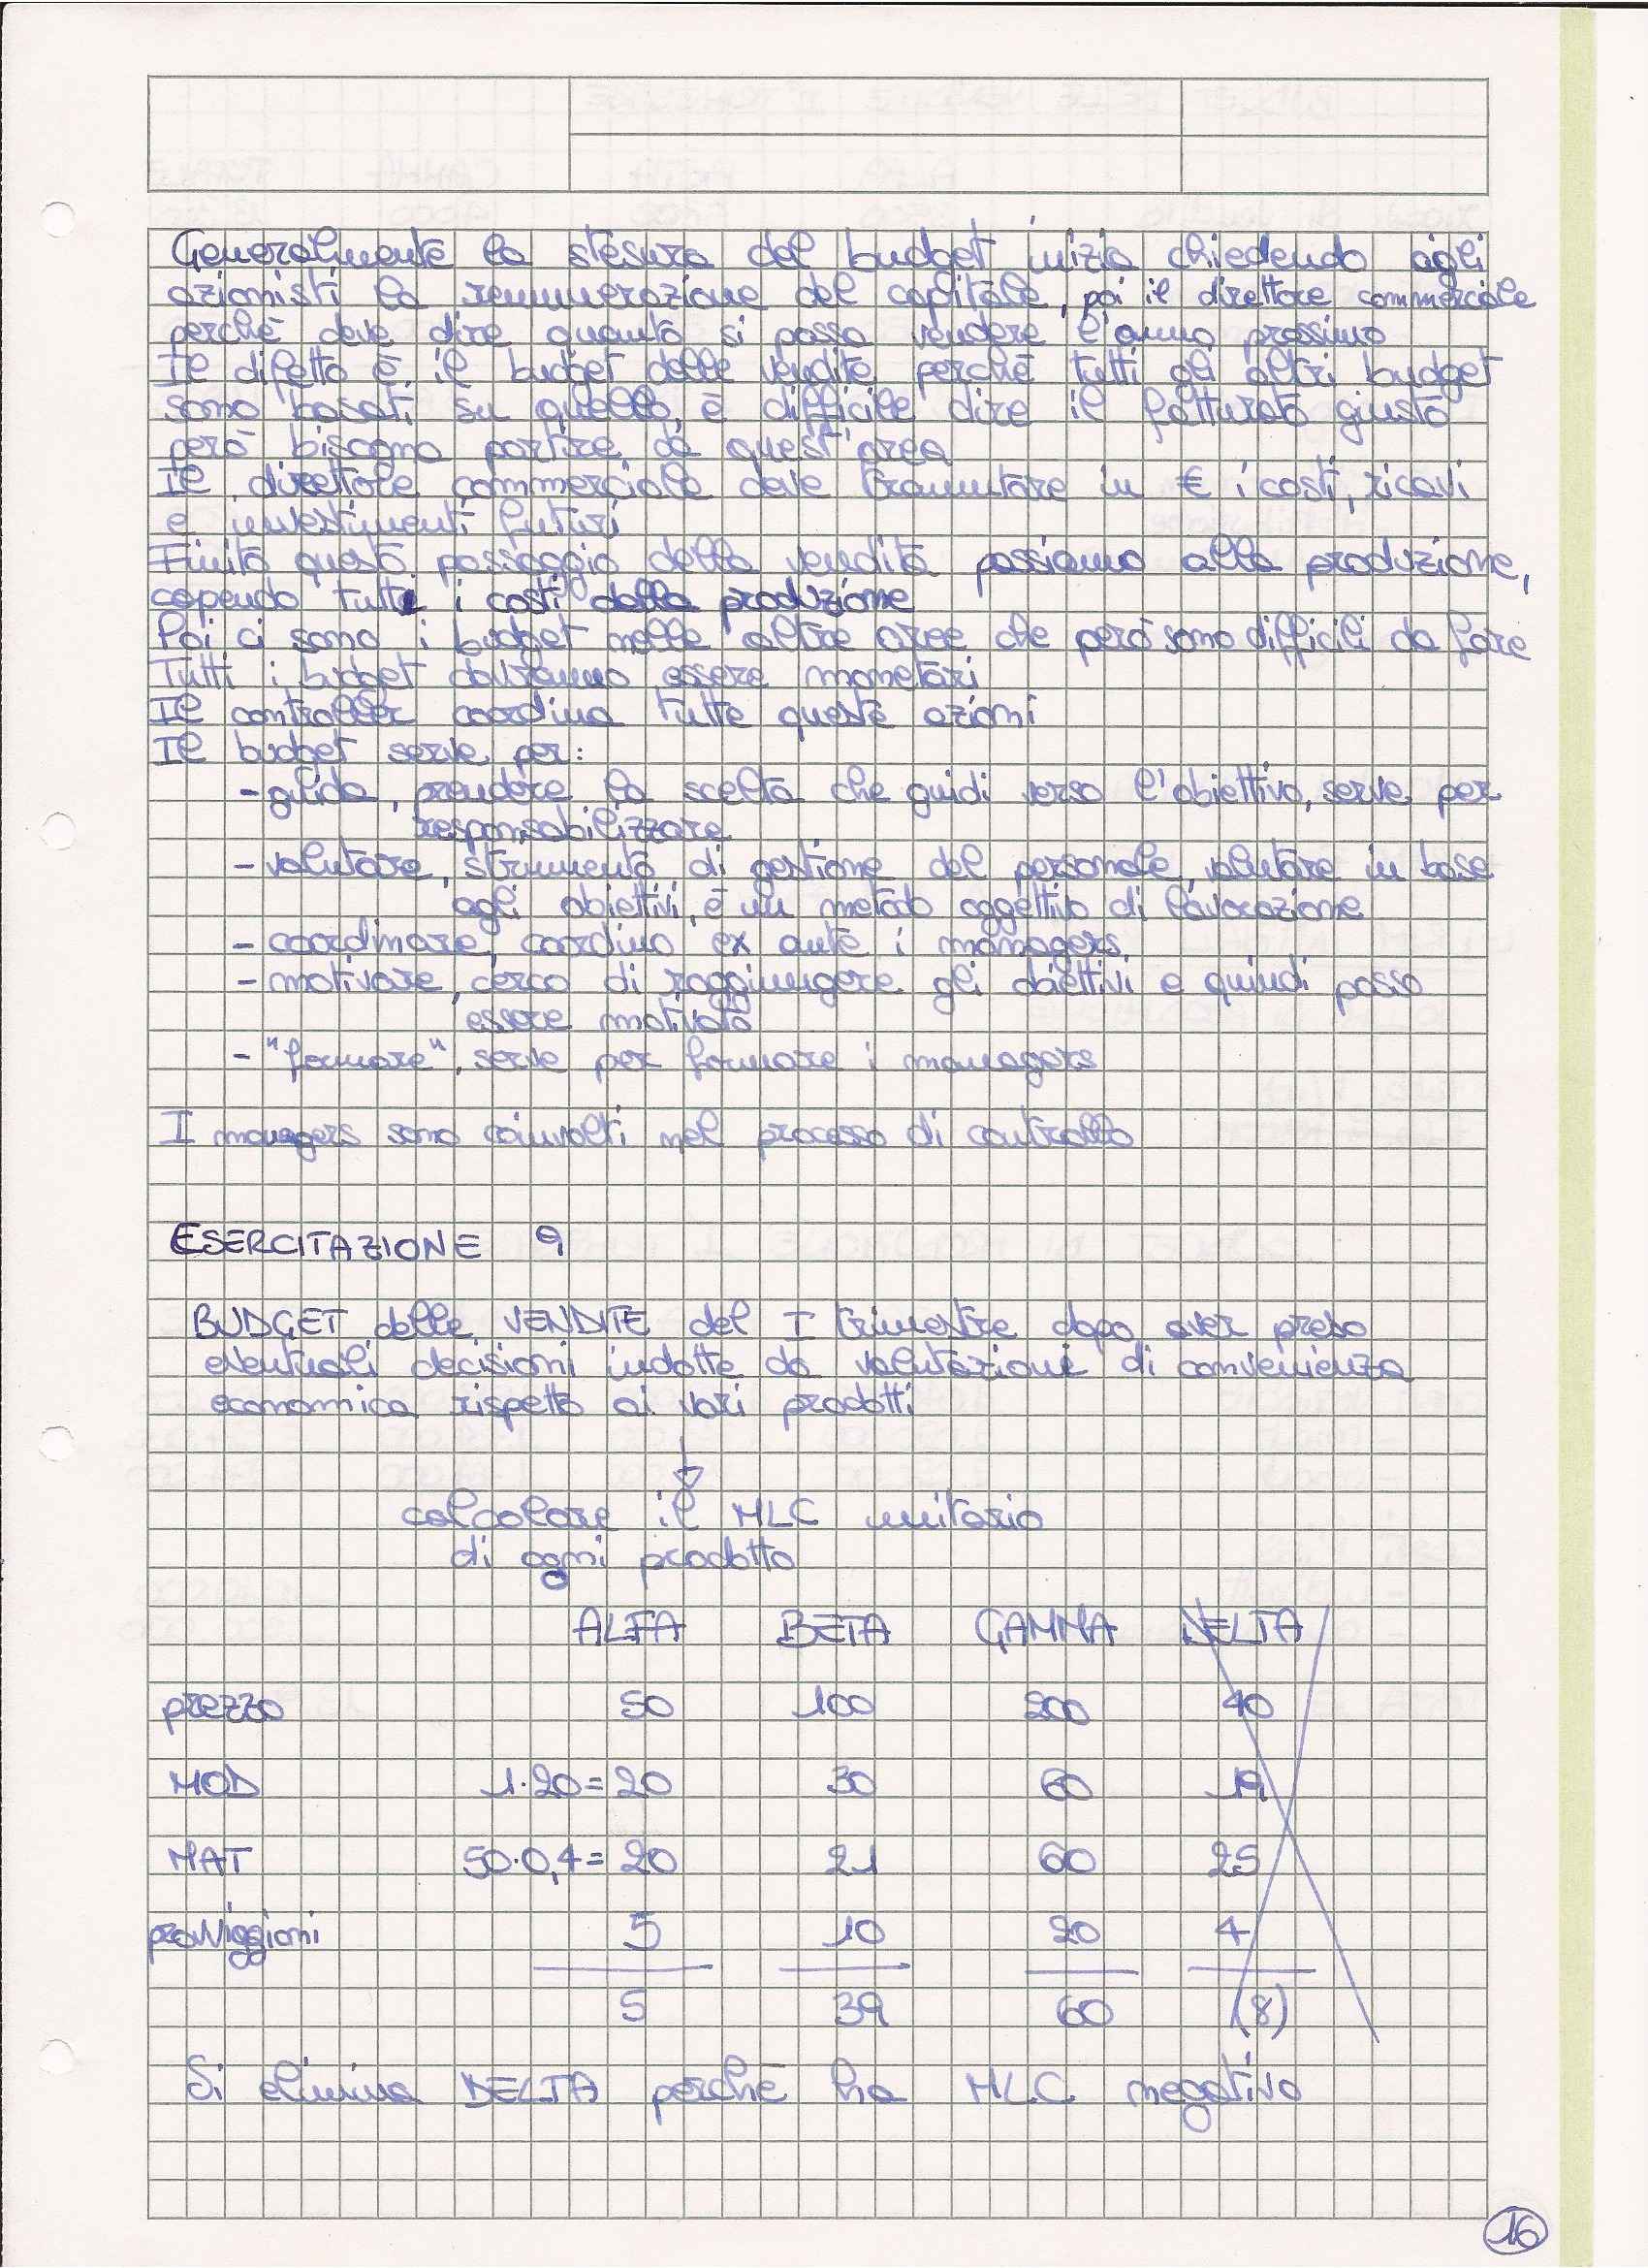 Generalmente la stesura del budget inizia chiedendo agli
azionisti la remunerazione del capitale, poi il direttore commerciale
perchè deve dire quanto si possa vendere l'anno prossimo
Il difetto è il budget delle vendite perchè tutti gli altri budget
sono basati su quello, è difficile dire il fatturato giusto
però bisogna partire da quest'area
Il direttore commerciale deve tramutare in € i costi, ricavi
e investimenti futuri
Finito questo passaggio della vendita passiamo alla produzione,
capendo tutti i costi della produzione
Poi ci sono i budget nelle altre aree che però sono difficili da fare
Tutti i budget dovranno essere monetari
Il controller coordina tutte queste azioni
Il budget serve per:
- guida, prendere la scelta che guidi verso l'obiettivo, serve per
responsabilizzare
- valutare, strumento di gestione del personale, valutare in base
agli obiettivi, è un metodo oggettivo di lavorazione
- coordinare, coordino ex ante i managers
- motivare, cerco di raggiungere gli obiettivi e quindi posso
essere motivato
- "formare", serve per formare i managers
I managers sono coinvolti nel processo di controllo
ESERCITAZIONE 9
BUDGET delle VENDITE del I trimestre dopo aver preso
eventuali decisioni indotte da valutazioni di convenienza
economica rispetto ai vari prodotti
↓
calcolare il MLC unitario
di ogni prodotto
ALFA BETA GAMMA DELTA
prezzo 50 100 200 40
MOD 1·20=20 30 60 19
MAT 50·0,4=20 21 60 25
provviggioni 5 10 20 4
5 39 60 (8)
Si elimina DELTA perchè ha MLC negativo
16